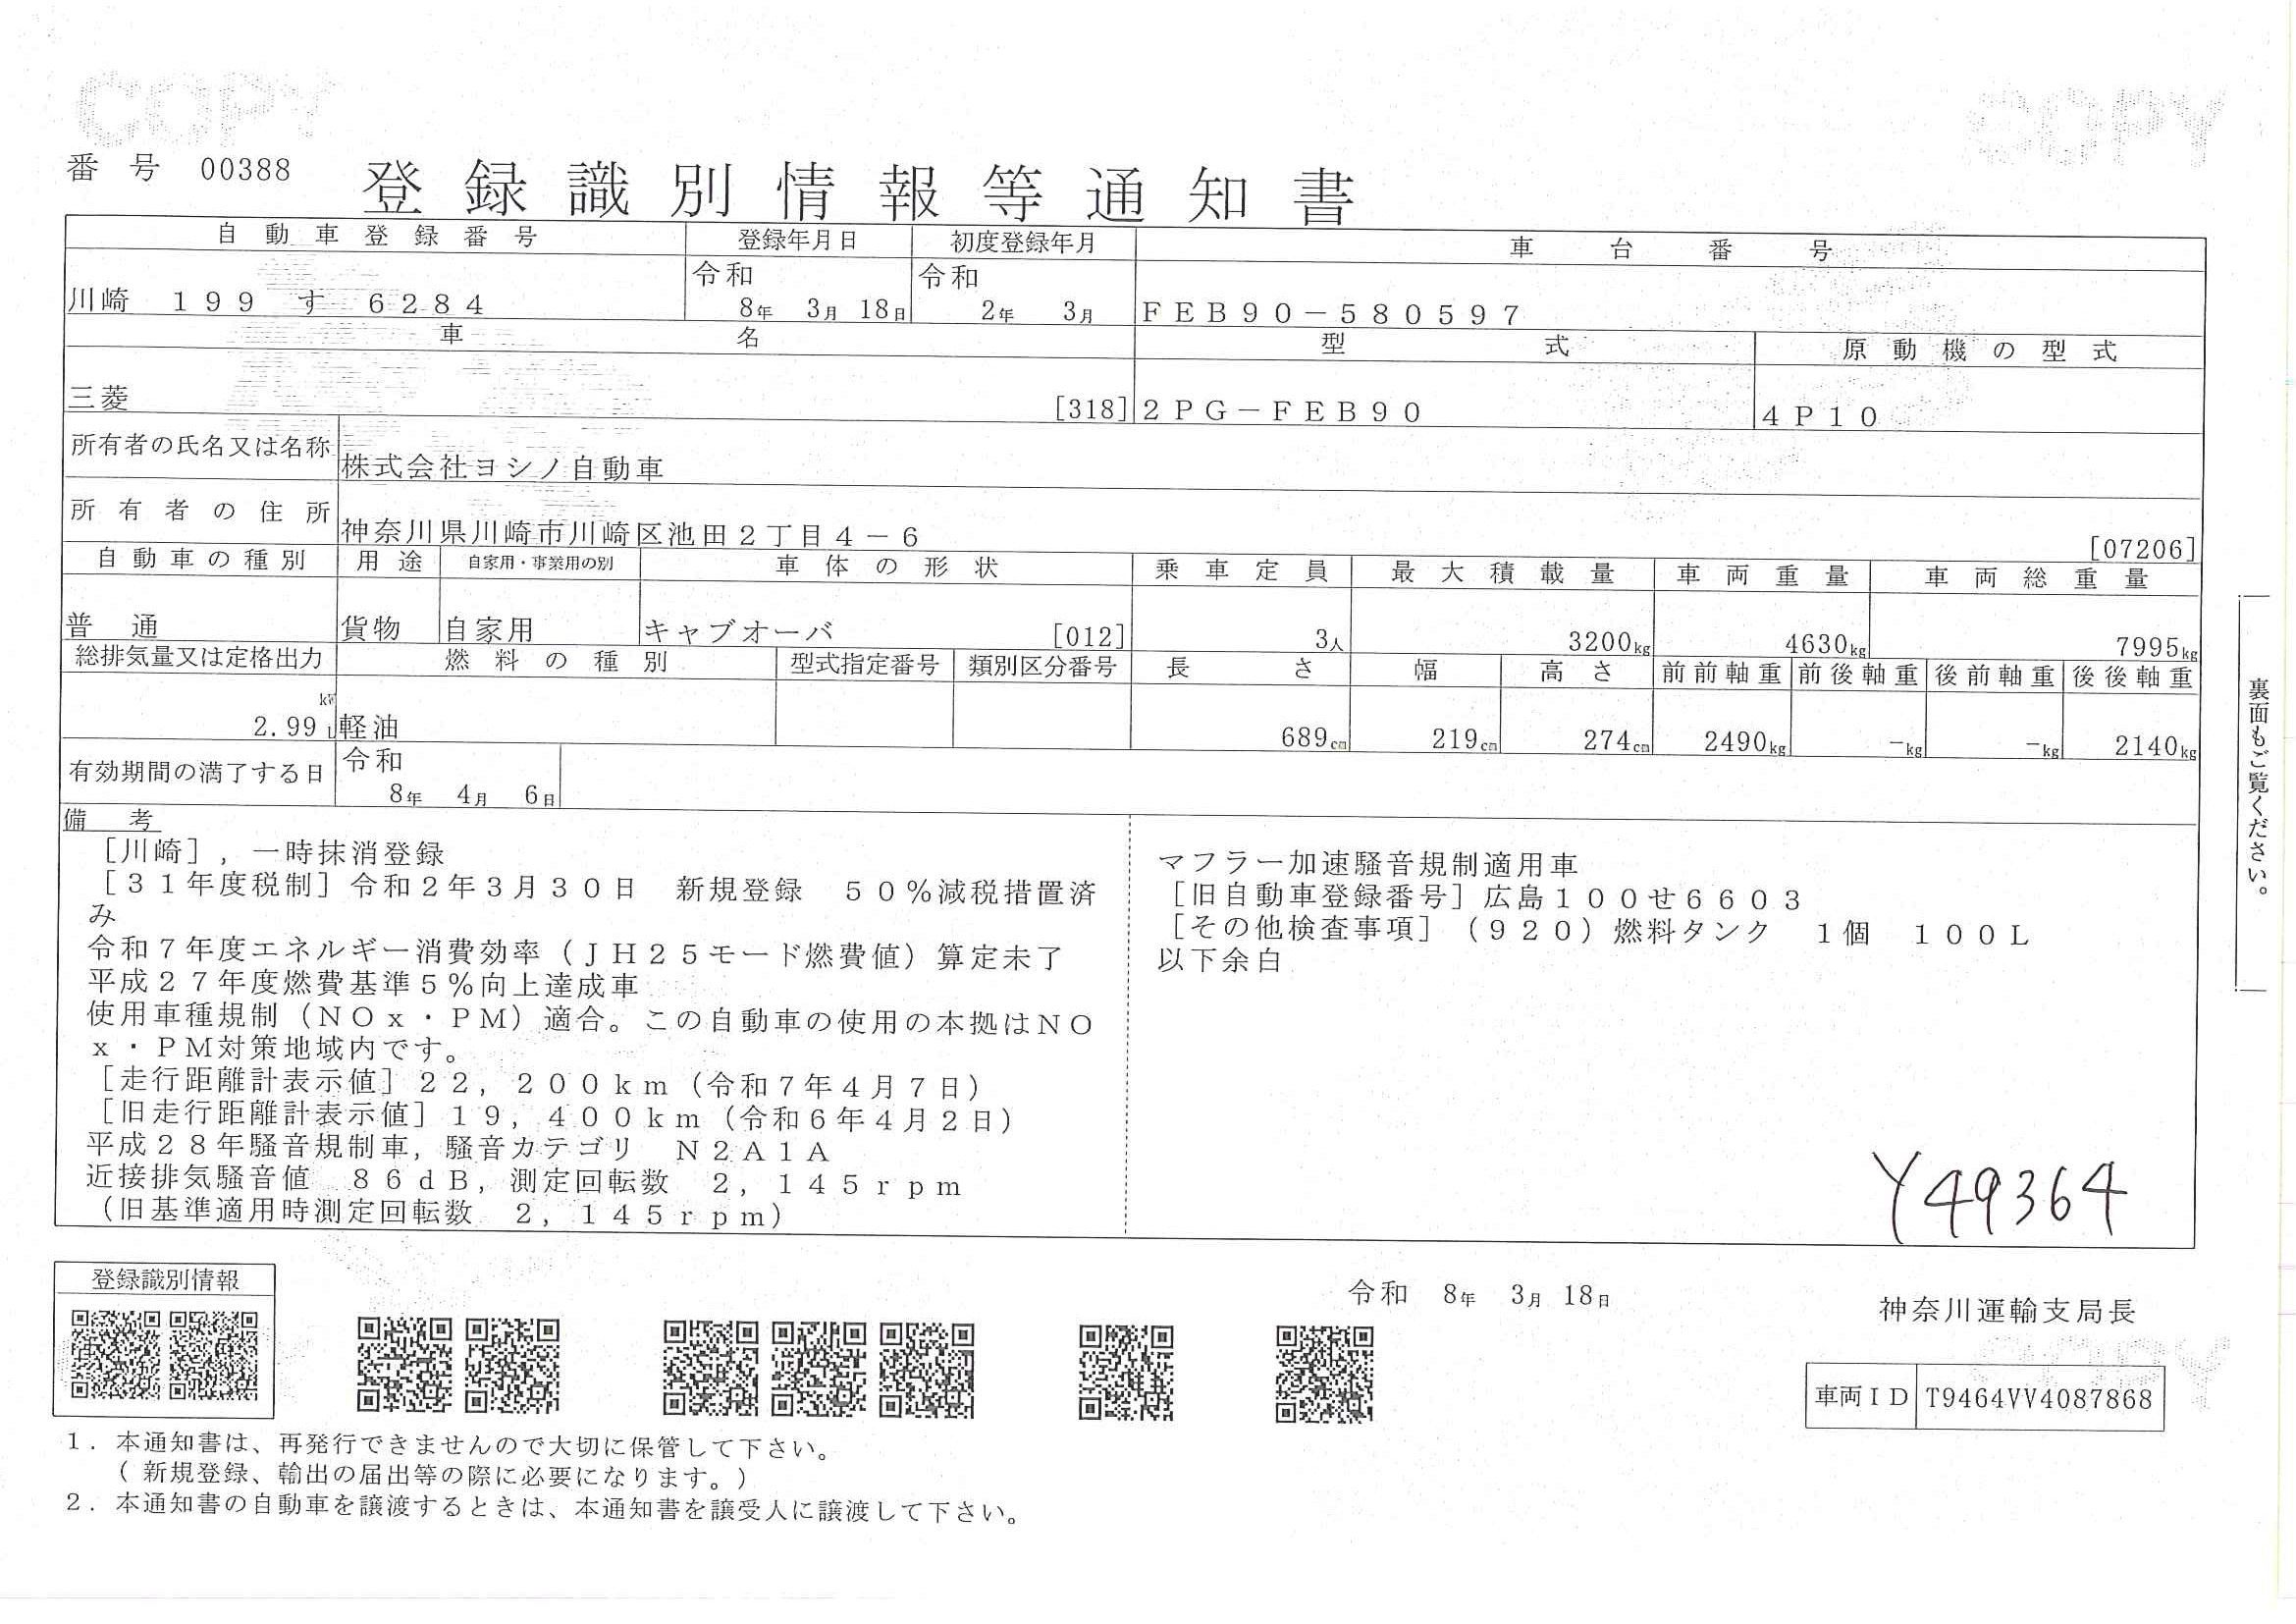 COPY
COPY
番号 00388
登録識別情報等通知書
自動車登録番号 登録年月日 初度登録年月 車台番号
川崎 199 す 6284 令和 8年 3月 18日 令和 2年 3月 FEB90-580597
車名 型式 原動機の型式
三菱 [318] 2PG-FEB90 4P10
所有者の氏名又は名称 株式会社ヨシノ自動車
所有者の住所 神奈川県川崎市川崎区池田2丁目4-6 [07206]
自動車の種別 用途 自家用・事業用の別 車体の形状 乗車定員 最大積載量 車両重量 車両総重量
普通 貨物 自家用 キャブオーバ [012] 3人 3200kg 4630kg 7995kg
総排気量又は定格出力 燃料の種別 型式指定番号 類別区分番号 長さ 幅 高さ 前前軸重 前後軸重 後前軸重 後後軸重
kW
2.99 L 軽油 689cm 219cm 274cm 2490kg -kg -kg 2140kg
有効期間の満了する日 令和 8年 4月 6日
備考
[川崎],一時抹消登録
[31年度税制]令和2年3月30日 新規登録 50%減税措置済
み
令和7年度エネルギー消費効率(JH25モード燃費値)算定未了
平成27年度燃費基準5%向上達成車
使用車種規制(NOx・PM)適合。この自動車の使用の本拠はNO
x・PM対策地域内です。
[走行距離計表示値]22,200km(令和7年4月7日)
[旧走行距離計表示値]19,400km(令和6年4月2日)
平成28年騒音規制車,騒音カテゴリ N2A1A
近接排気騒音値 86dB,測定回転数 2,145rpm
(旧基準適用時測定回転数 2,145rpm)
マフラー加速騒音規制適用車
[旧自動車登録番号]広島100せ6603
[その他検査事項](920)燃料タンク 1個 100L
以下余白
Y49364
裏面もご覧ください。
登録識別情報
令和 8年 3月 18日
神奈川運輸支局長
COPY
車両ID T9464VV4087868
1.本通知書は、再発行できませんので大切に保管して下さい。
(新規登録、輸出の届出等の際に必要になります。)
2.本通知書の自動車を譲渡するときは、本通知書を譲受人に譲渡して下さい。